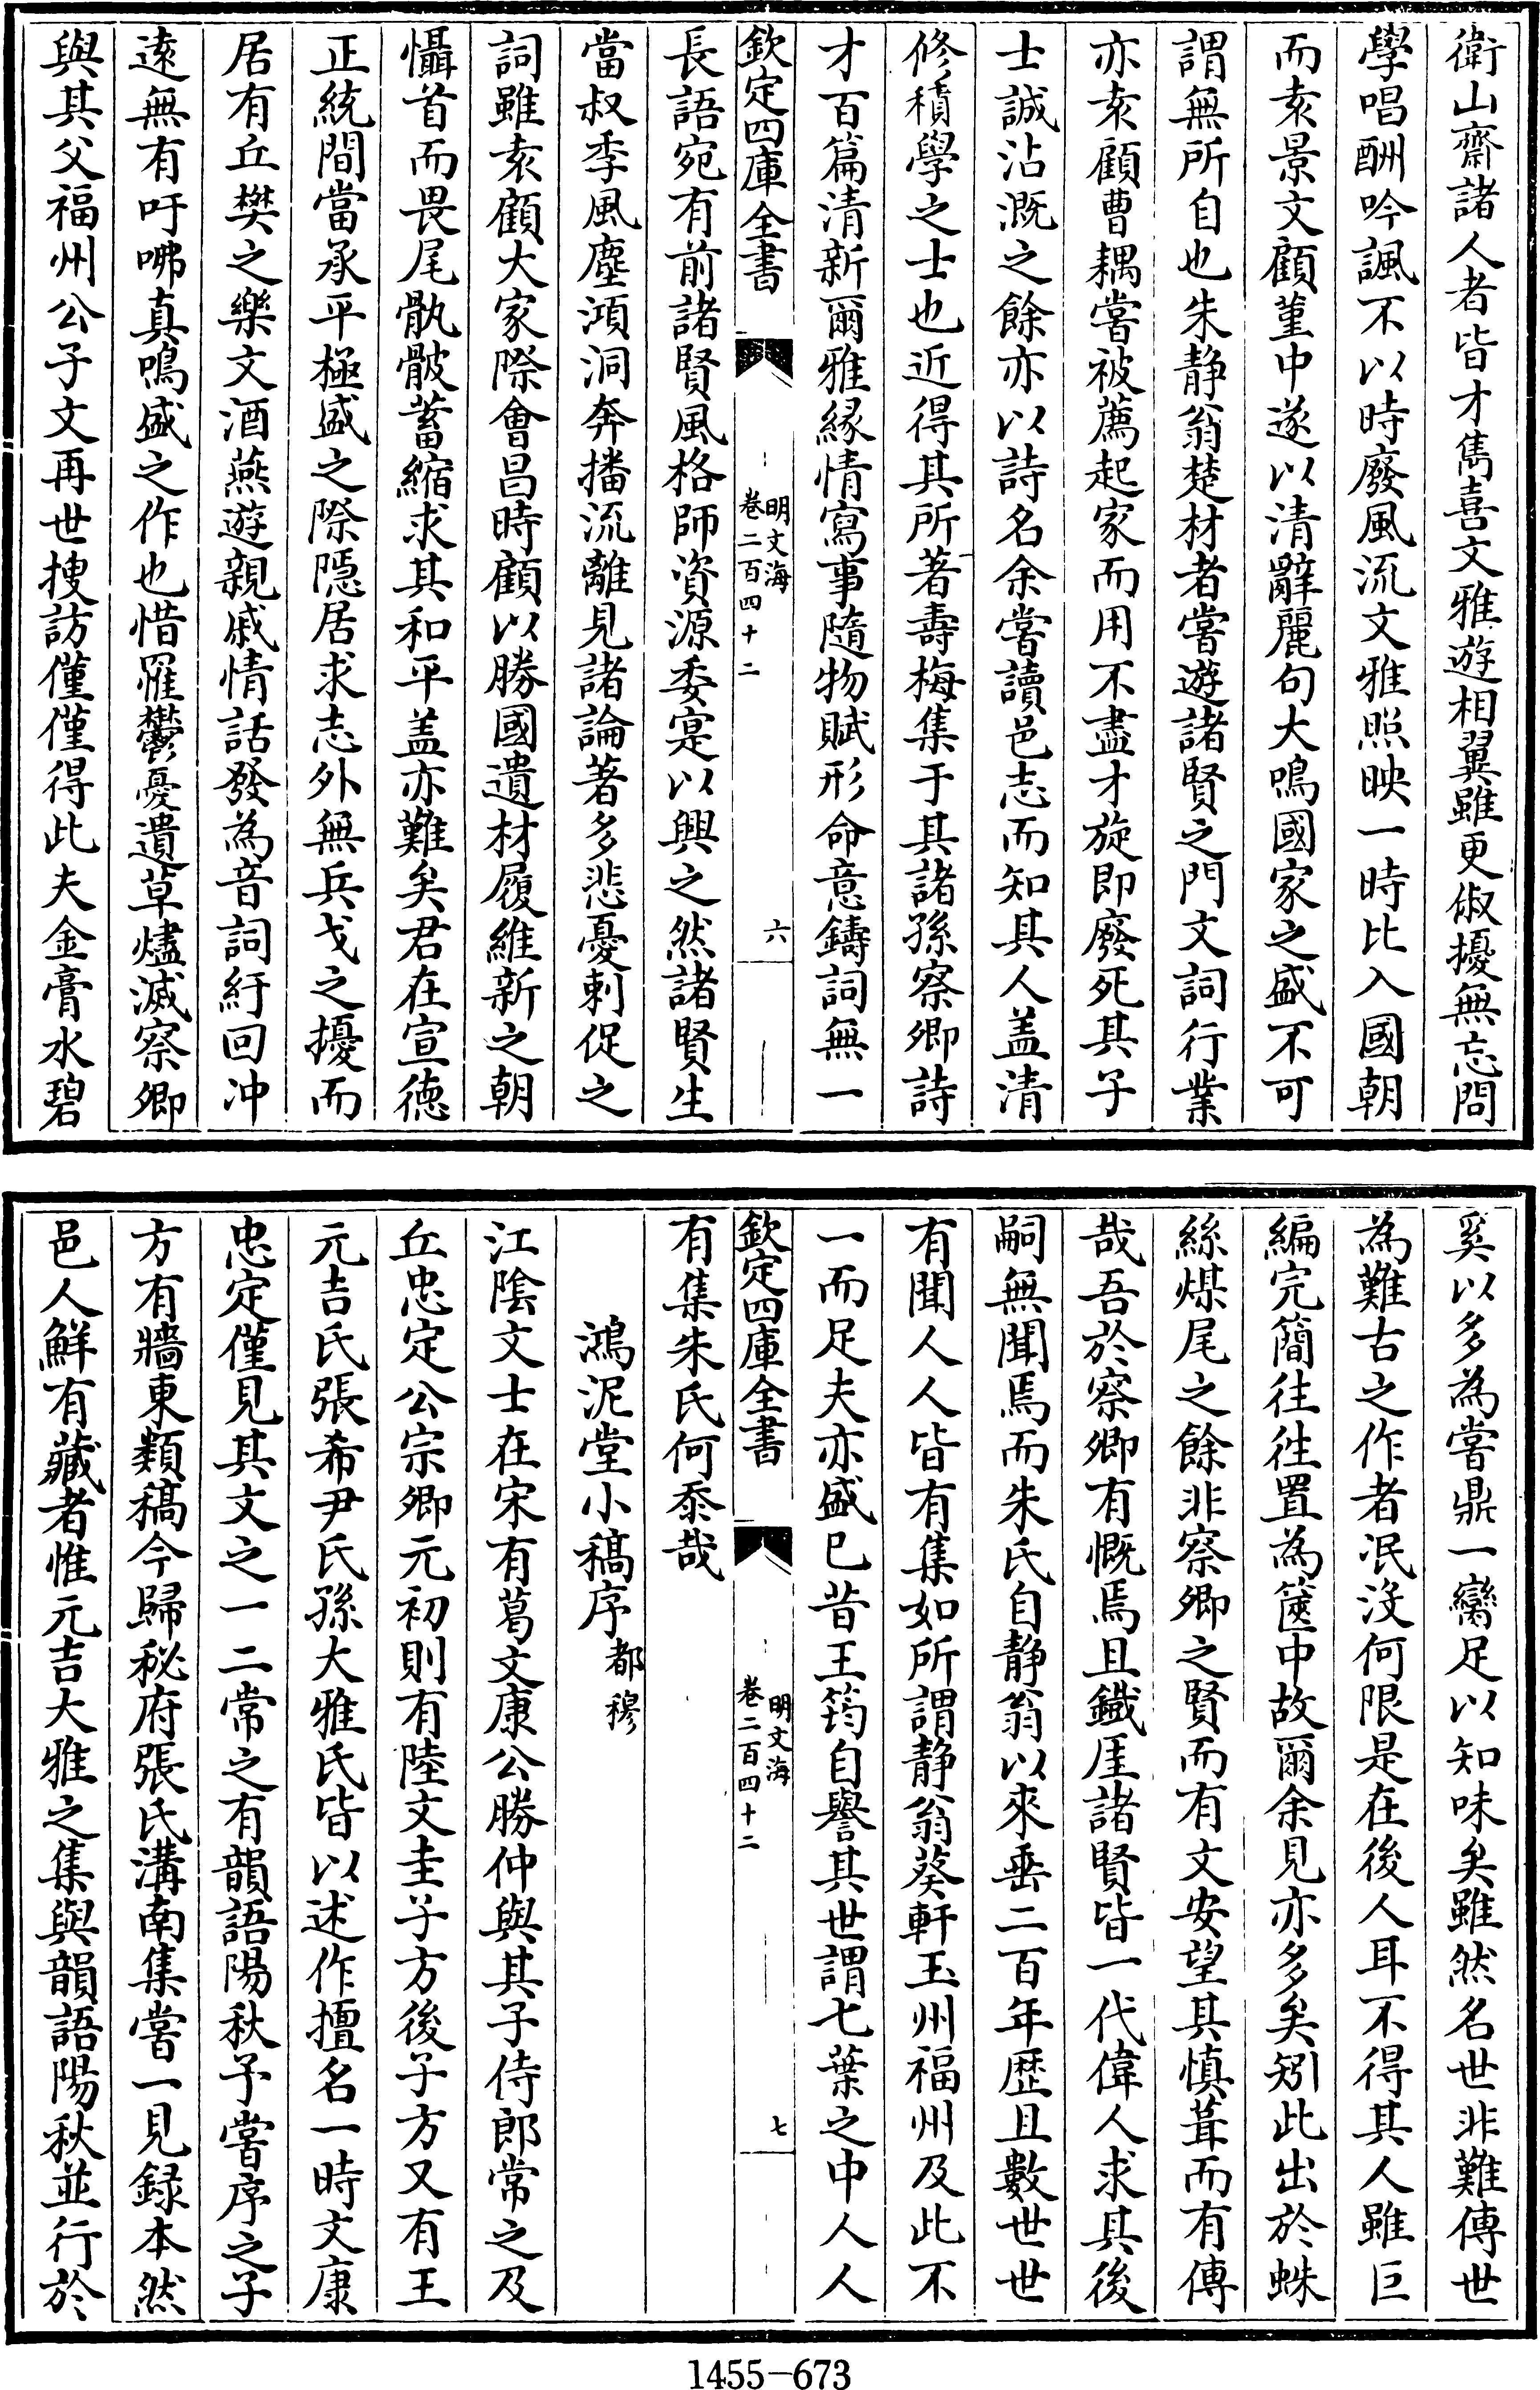 衛山齋諸人者皆才雋喜文雅遊相翼雖更俶擾無忘問
學唱酬吟諷不以時廢風流文雅照映一時比入國朝
而袁景文顧菫中遂以清辭麗句大鳴國家之盛不可
謂無所自也朱静翁楚材者嘗遊諸賢之門文詞行業
亦袁顧曹耦嘗被薦起家而用不盡才旋即廢死其子
士誠沾溉之餘亦以詩名余嘗讀邑志而知其人盖清
修積學之士也近得其所著壽梅集于其諸孫察卿詩
才百篇清新爾雅縁情寫事隨物賦形命意鑄詞無一
欽定四庫全書
明文海
卷二百四十二
六
長語宛有前諸賢風格師資源委寔以興之然諸賢生
當叔季風塵澒洞奔播流離見諸論著多悲憂刺促之
詞雖袁顧大家際會昌時顧以勝國遺材履維新之朝
懾首而畏尾骫骳蓄縮求其和平盖亦難矣君在宣徳
正統間當承平極盛之際隱居求志外無兵戈之擾而
居有丘樊之樂文酒燕遊親戚情話發為音詞紆回冲
逺無有吁咈真鳴盛之作也惜罹鬱憂遺草燼滅察卿
與其父福州公子文再世搜訪僅僅得此夫金膏水碧
奚以多為嘗鼎一臠足以知味矣雖然名世非難傳世
為難古之作者冺沒何限是在後人耳不得其人雖巨
編完簡往往置為篋中故爾余見亦多矣矧此出於蛛
絲煤尾之餘非察卿之賢而有文安望其慎葺而有傳
哉吾於察卿有慨焉且鐵厓諸賢皆一代偉人求其後
嗣無聞焉而朱氏自静翁以來垂二百年歴且數世世
有聞人人皆有集如所謂静翁葵軒玉州福州及此不
一而足夫亦盛已昔王筠自譽其世謂七葉之中人人
欽定四庫全書
明文海
卷二百四十二
七
有集朱氏何忝哉
鴻泥堂小稿序 都穆
江陰文士在宋有葛文康公勝仲與其子侍郎常之及
丘忠定公宗卿元初則有陸文圭子方後子方又有王
元吉氏張希尹氏孫大雅氏皆以述作擅名一時文康
忠定僅見其文之一二常之有韻語陽秋予嘗序之子
方有牆東類稿今歸秘府張氏溝南集嘗一見録本然
邑人鮮有藏者惟元吉大雅之集與韻語陽秋並行於
1455-673